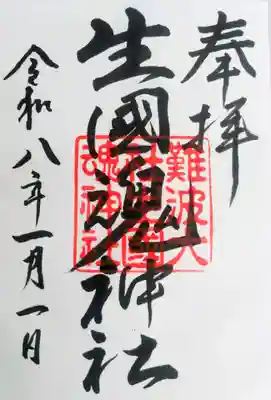 奉拝
生國魂神社
令和八年一月一日
難波大
社生國
魂神社